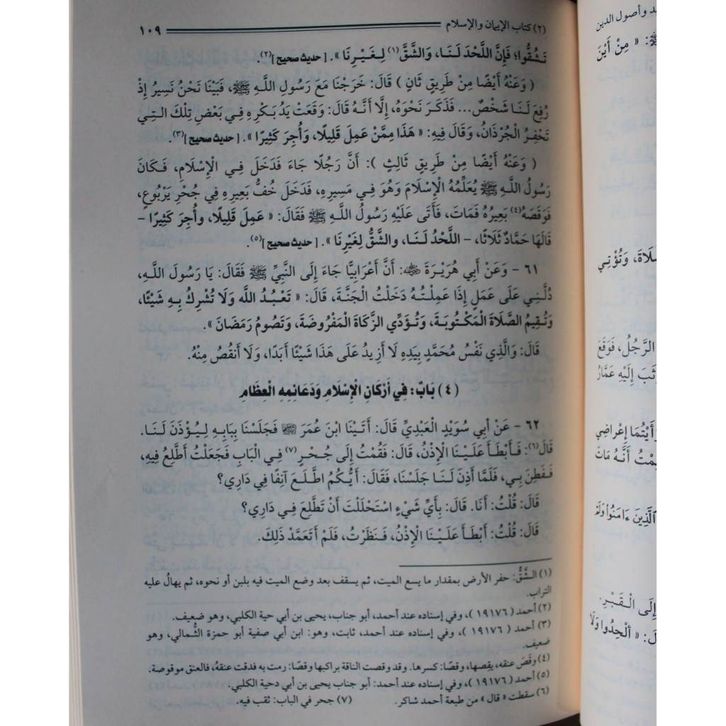 (٢) كتاب الإيمان والإسلام ١٠٩
تَشُقُّوا؛ فَإِنَّ اللَّحْدَ لَنَا، وَالشَّقَّ(١) لِغَيْرِنَا ». [حديث صحيح](٢).
( وَعَنْهُ أَيْضًا مِنْ طَرِيقٍ ثَانٍ ) قَالَ: خَرَجْنَا مَعَ رَسُولِ اللَّهِ ﷺ، فَبَيْنَا نَحْنُ نَسِيرُ إِذْ
رُفِعَ لَنَا شَخْصٌ... فَذَكَرَ نَحْوَهُ، إِلَّا أَنَّهُ قَالَ: وَقَعَتْ يَدُ بَكْرِهِ فِي بَعْضِ تِلْكَ الَّتِي
تَحْفِرُ الْجُرْذَانُ، وَقَالَ فِيهِ: « هَذَا مِمَّنْ عَمِلَ قَلِيلًا، وَأُجِرَ كَثِيرًا ». [حديث صحيح](٣).
( وَعَنْهُ أَيْضًا مِنْ طَرِيقٍ ثَالِثٍ ): أَنَّ رَجُلًا جَاءَ فَدَخَلَ فِي الْإِسْلَامِ، فَكَانَ
رَسُولُ اللَّهِ ﷺ يُعَلِّمُهُ الْإِسْلَامَ وَهُوَ فِي مَسِيرِهِ، فَدَخَلَ خُفُّ بَعِيرِهِ فِي جُحْرِ يَرْبُوعٍ،
فَوَقَصَهُ(٤) بَعِيرُهُ فَمَاتَ، فَأَتَى عَلَيْهِ رَسُولُ اللَّهِ ﷺ فَقَالَ: « عَمِلَ قَلِيلًا، وَأُجِرَ كَثِيرًا -
قَالَهَا حَمَّادٌ ثَلَاثًا، - اللَّحْدُ لَنَا، وَالشَّقُّ لِغَيْرِنَا ». [حديث صحيح](٥).
٦١ - وَعَنْ أَبِي هُرَيْرَةَ ﷺ: أَنَّ أَعْرَابِيًّا جَاءَ إِلَى النَّبِيِّ ﷺ فَقَالَ: يَا رَسُولَ اللَّهِ،
دُلَّنِي عَلَى عَمَلٍ إِذَا عَمِلْتُهُ دَخَلْتُ الْجَنَّةَ، قَالَ: « تَعْبُدُ اللَّه وَلَا تُشْرِكُ بِهِ شَيْئًا،
وَتُقِيمُ الصَّلَاةَ الْمَكْتُوبَةَ، وَتُؤَدِّي الزَّكَاةَ الْمَفْرُوضَةَ، وَتَصُومُ رَمَضَانَ ».
قَالَ: وَالَّذِي نَفْسُ مُحَمَّدٍ بِيَدِهِ لَا أَزِيدُ عَلَى هَذَا شَيْئًا أَبَدًا، وَلَا أَنْقُصُ مِنْهُ.
( ٤ ) بَابٌ: فِي أَرْكَانِ الْإِسْلَامِ وَدَعَائِمِهِ الْعِظَامِ
٦٢ - عَنْ أَبِي سُوَيْدٍ الْعَبْدِيِّ قَالَ: أَتَيْنَا ابْنَ عُمَرَ ﷺ فَجَلَسْنَا بِبَابِهِ لِيُؤْذَنَ لَنَا.
قَالَ(٦): فَأَبْطَأَ عَلَيْنَا الْإِذْنُ، قَالَ: فَقُمْتُ إِلَى جُحْرٍ(٧) فِي الْبَابِ فَجَعَلْتُ أَطَّلِعُ فِيهِ،
فَفَطِنَ بِي، فَلَمَّا أَذِنَ لَنَا جَلَسْنَا، فَقَالَ: أَيُّكُمُ اطَّلَعَ آنِفًا فِي دَارِي؟
قَالَ: قُلْتُ: أَنَا. قَالَ: بِأَيِّ شَيْءٍ اسْتَحْلَلْتَ أَنْ تَطَّلِعَ فِي دَارِي؟
قَالَ: قُلْتُ: أَبْطَأَ عَلَيْنَا الْإِذْنُ، فَنَظَرْتُ، فَلَمْ أَتَعَمَّدْ ذَلِكَ.
(١) الشَّقُّ: حفر الأرض بمقدار ما يسع الميت، ثم يسقف بعد وضع الميت فيه بلبن أو نحوه، ثم يهال عليه
التراب.
(٢) أحمد ( ١٩١٧٦ )، وفي إسناده عند أحمد، أبو جناب، يحيى بن أبي حية الكلبي، وهو ضعيف.
(٣) أحمد ( ١٩١٧٦ )، وفي إسناده عند أحمد، ثابت، وهو: ابن أبي صفية أبو حمزة الثُّمالي، وهو
ضعيف.
(٤) وقَصَ عنقه، يقصها، وقصًا: كسرها. وقد وقصت الناقة براكبها وقصًا: رمت به فدقت عنقهُ، فالعنق موقوصة.
(٥) أحمد ( ١٩١٧٧ )، وفي إسناده عند أحمد: أبو جناب يحيى بن أبي دحية الكلبي.
(٦) سقطت « قال » من طبعة أحمد شاكر. (٧) جحر في الباب: ثقب فيه.
د وأصول الدين
: « مِنْ أَيْنَ
صَلَاةَ، وَتُؤْتِي
الرَّجُلُ، فَوَقَعَ
ثَبَ إِلَيْهِ عَمَّارُ
رَأَيْتُمَا إِعْرَاضِي
مْتُ أَنَّهُ مَاتَ
الَّذِينَ ءَامَنُوا وَلَمْ
إِلَى الْقَبْرِ.
لَ: « أَلْحِدُوا وَلَا